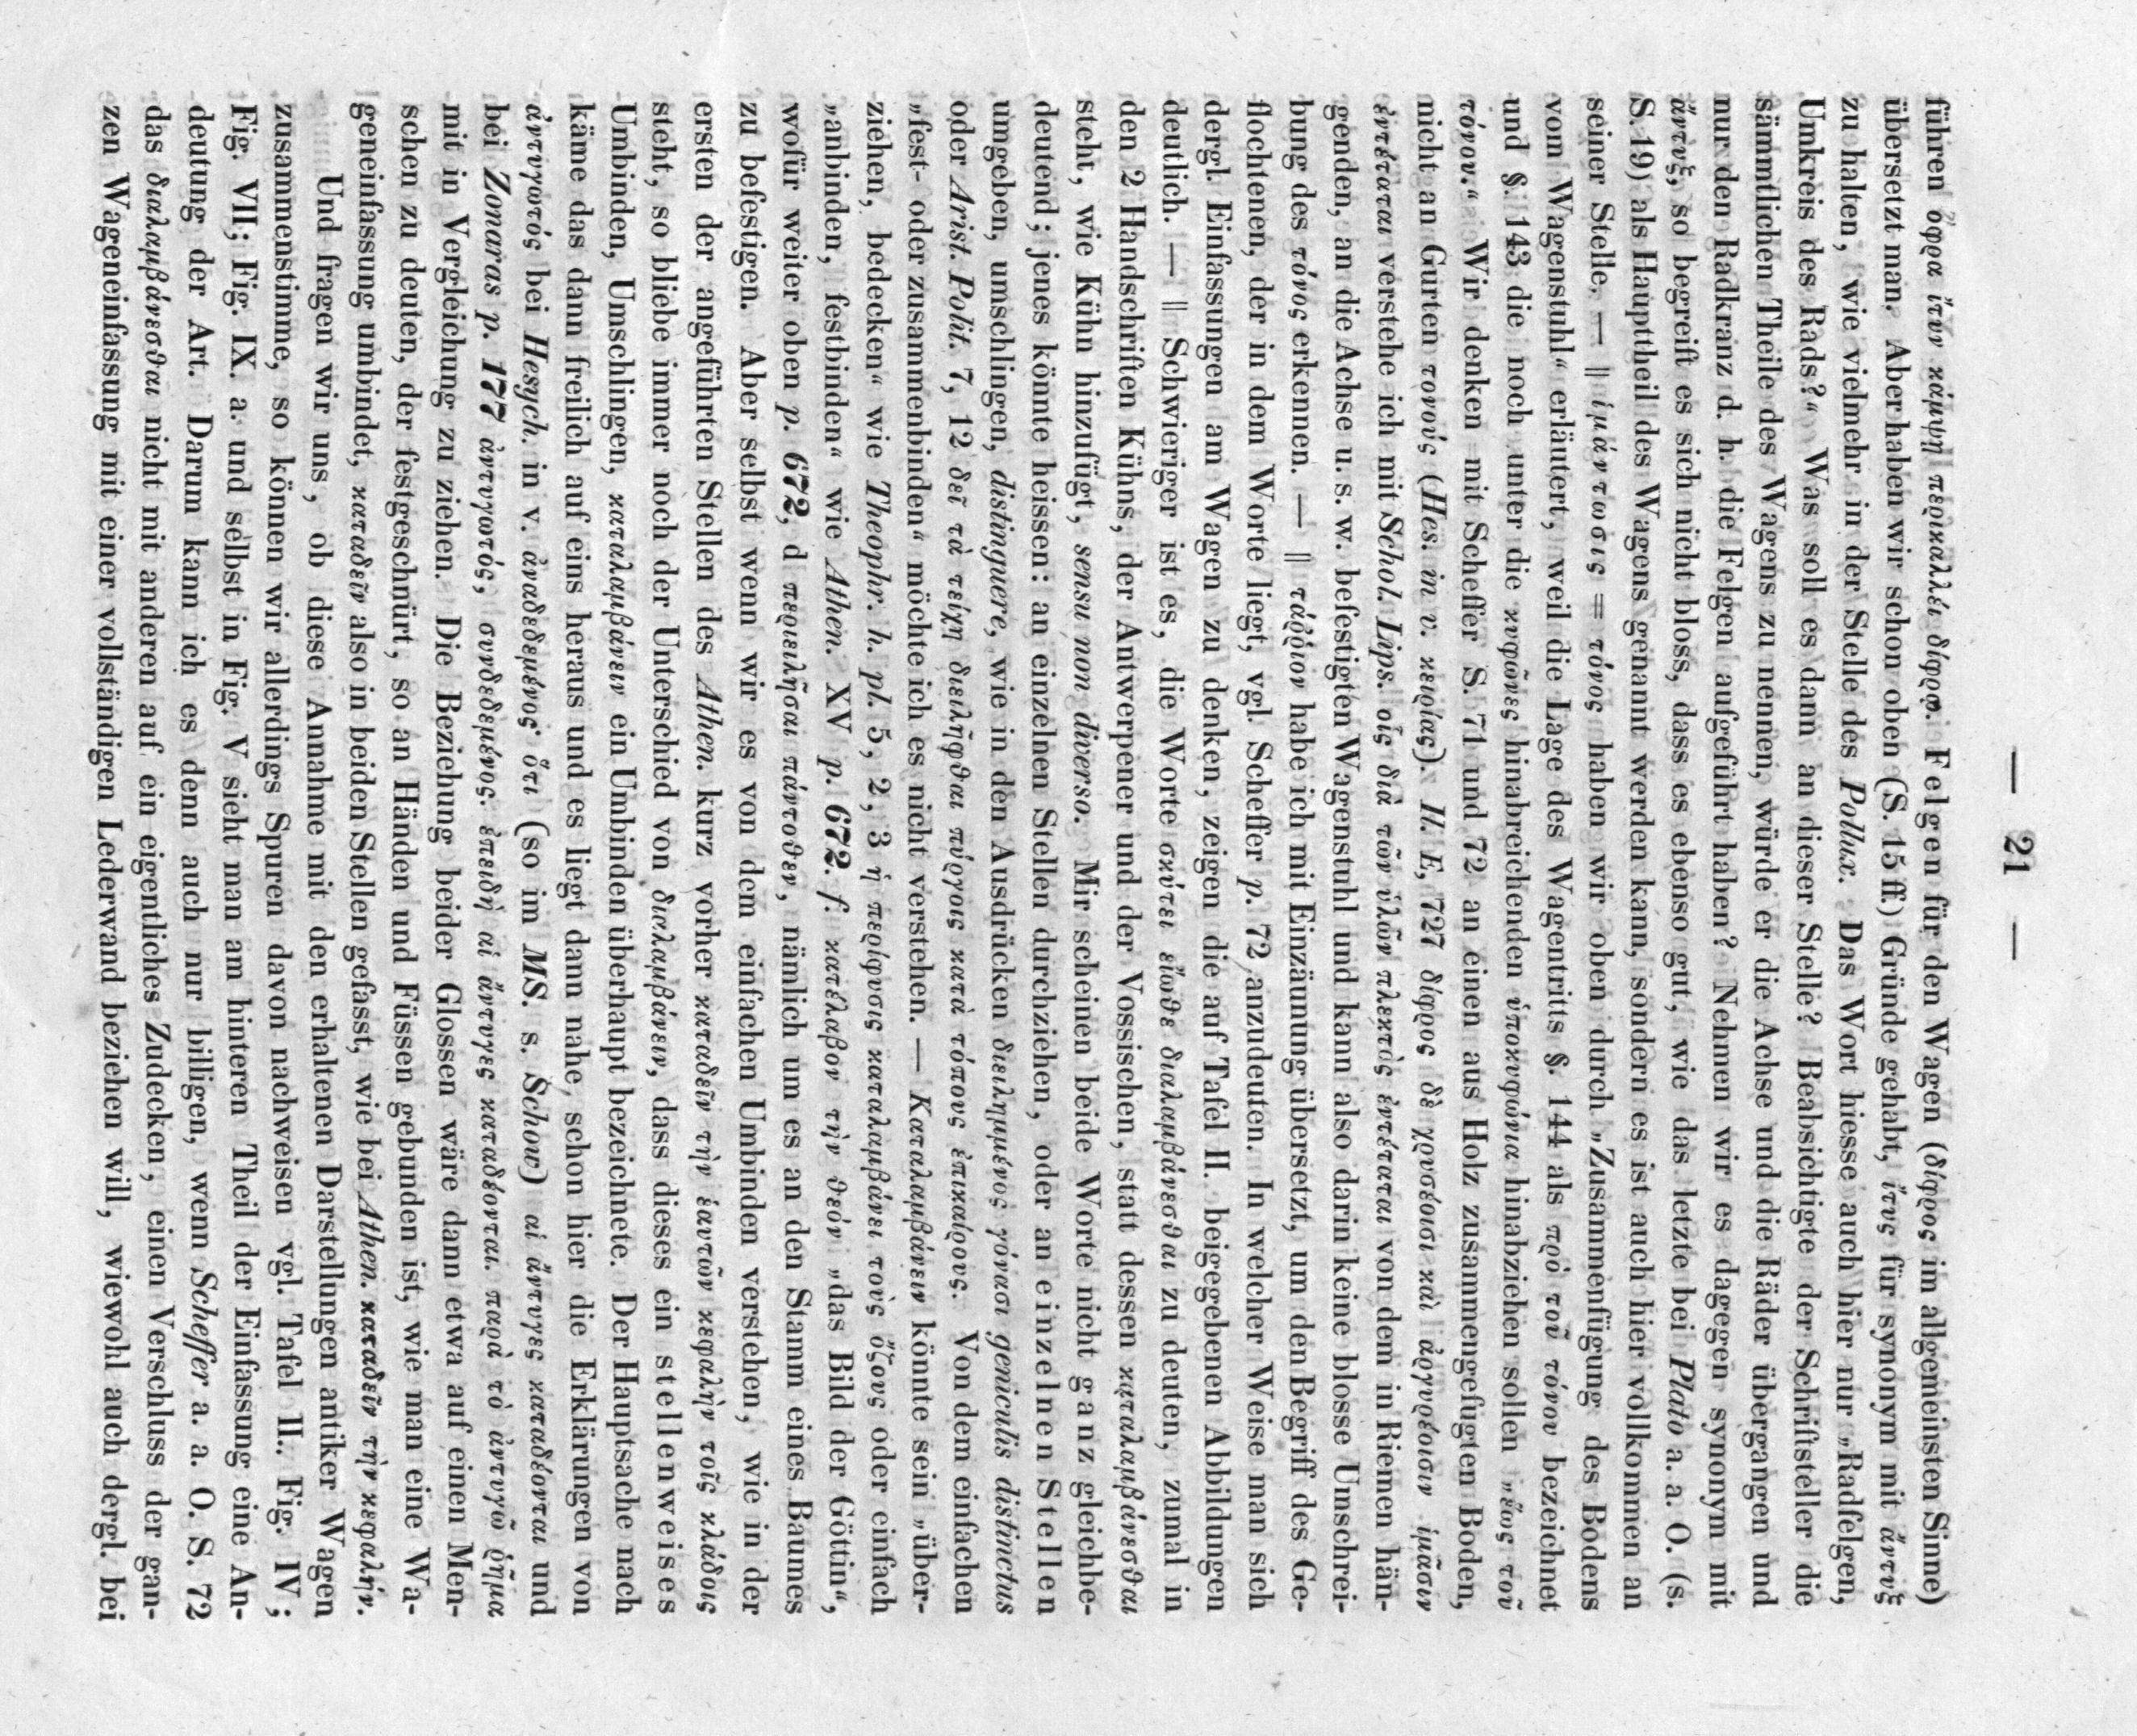 — 21 —
führen ὄφρα ἴτυν κάμψῃ περικαλλέι δίφρῳ. Felgen für den Wagen (δίφρος im allgemeinsten Sinne)
übersetzt man. Aber haben wir schon oben (S. 15 ff.) Gründe gehabt, ἴτυς für synonym mit ἄντυξ
zu halten, wie vielmehr in der Stelle des Pollux. Das Wort hiesse auch hier nur „Radfelgen,
Umkreis des Rads?“ Was soll es dann an dieser Stelle? Beabsichtigte der Schriftsteller die
sämmtlichen Theile des Wagens zu nennen, würde er die Achse und die Räder übergangen und
nur den Radkranz d. h. die Felgen aufgeführt haben? Nehmen wir es dagegen synonym mit
ἄντυξ, so begreift es sich nicht bloss, dass es ebenso gut, wie das letzte bei Plato a. a. O. (s.
S. 19) als Haupttheil des Wagens genannt werden kann, sondern es ist auch hier vollkommen an
seiner Stelle. — ‖ ἱμάντωσις = τόνος haben wir oben durch „Zusammenfügung des Bodens
vom Wagenstuhl“ erläutert, weil die Lage des Wagentritts §. 144 als πρὸ τοῦ τόνου bezeichnet
und §. 143 die noch unter die κυφῶνες hinabreichenden ὑποκυφώνια hinabziehen sollen „ἕως τοῦ
τόνου.“ Wir denken mit Scheffer S. 71 und 72 an einen aus Holz zusammengefügten Boden,
nicht an Gurten τονούς (Hes. in v. κειρίας). Il. E, 727 δίφρος δὲ χρυσέοισι καὶ ἀργυρέοισιν ἱμᾶσιν
ἐντέταται verstehe ich mit Schol. Lips. οἷς διὰ τῶν ὑλῶν πλεκτὸς ἐντέταται von dem in Riemen hän-
genden, an die Achse u. s. w. befestigten Wagenstuhl und kann also darin keine blosse Umschrei-
bung des τόνος erkennen. — ‖ τάῤῥιον habe ich mit Einzäunung übersetzt, um den Begriff des Ge-
flochtenen, der in dem Worte liegt, vgl. Scheffer p. 72 anzudeuten. In welcher Weise man sich
dergl. Einfassungen am Wagen zu denken, zeigen die auf Tafel II. beigegebenen Abbildungen
deutlich. — ‖ Schwieriger ist es, die Worte σκύτει εἴωθε διαλαμβάνεσθαι zu deuten, zumal in
den 2 Handschriften Kühns, der Antwerpener und der Vossischen, statt dessen καταλαμβάνεσθαι
steht, wie Kühn hinzufügt, sensu non diverso. Mir scheinen beide Worte nicht ganz gleichbe-
deutend; jenes könnte heissen: an einzelnen Stellen durchziehen, oder an einzelnen Stellen
umgeben, umschlingen, distinguere, wie in den Ausdrücken διειλημμένος γόνασι geniculis distinctus
oder Arist. Polit. 7, 12 δεῖ τὰ τείχη διειλῆφθαι πύργοις κατὰ τόπους ἐπικαίρους. Von dem einfachen
„fest- oder zusammenbinden“ möchte ich es nicht verstehen. — Καταλαμβάνειν könnte sein „über-
ziehen, bedecken“ wie Theophr. h. pl. 5, 2, 3 ἡ περίφυσις καταλαμβάνει τοὺς ὄζους oder einfach
„anbinden, festbinden“ wie Athen. XV p. 672. f. κατέλαβον τὴν θεόν „das Bild der Göttin“,
wofür weiter oben p. 672, d περιειλῆσαι πάντοθεν, nämlich um es an den Stamm eines Baumes
zu befestigen. Aber selbst wenn wir es von dem einfachen Umbinden verstehen, wie in der
ersten der angeführten Stellen des Athen. kurz vorher καταδεῖν τὴν ἑαυτῶν κεφαλὴν τοῖς κλάδοις
steht, so bliebe immer noch der Unterschied von διαλαμβάνειν, dass dieses ein stellenweises
Umbinden, Umschlingen, καταλαμβάνειν ein Umbinden überhaupt bezeichnete. Der Hauptsache nach
käme das dann freilich auf eins heraus und es liegt dann nahe, schon hier die Erklärungen von
ἀντυγωτός bei Hesych. in v. ἀναδεδεμένος· ὅτι (so im MS. s. Schow) αἱ ἄντυγες καταδέονται und
bei Zonaras p. 177 ἀντυγωτός, συνδεδεμένος. ἐπειδὴ αἱ ἄντυγες καταδέονται. παρὰ τὸ ἀντυγῶ ῥῆμα
mit in Vergleichung zu ziehen. Die Beziehung beider Glossen wäre dann etwa auf einen Men-
schen zu deuten, der festgeschnürt, so an Händen und Füssen gebunden ist, wie man eine Wa-
geneinfassung umbindet, καταδεῖν also in beiden Stellen gefasst, wie bei Athen. καταδεῖν τὴν κεφαλήν.
Und fragen wir uns, ob diese Annahme mit den erhaltenen Darstellungen antiker Wagen
zusammenstimme, so können wir allerdings Spuren davon nachweisen vgl. Tafel II. Fig. IV;
Fig. VII; Fig. IX. a. und selbst in Fig. V sieht man am hinteren Theil der Einfassung eine An-
deutung der Art. Darum kann ich es denn auch nur billigen, wenn Scheffer a. a. O. S. 72
das διαλαμβάνεσθαι nicht mit anderen auf ein eigentliches Zudecken, einen Verschluss der gan-
zen Wageneinfassung mit einer vollständigen Lederwand beziehen will, wiewohl auch dergl. bei